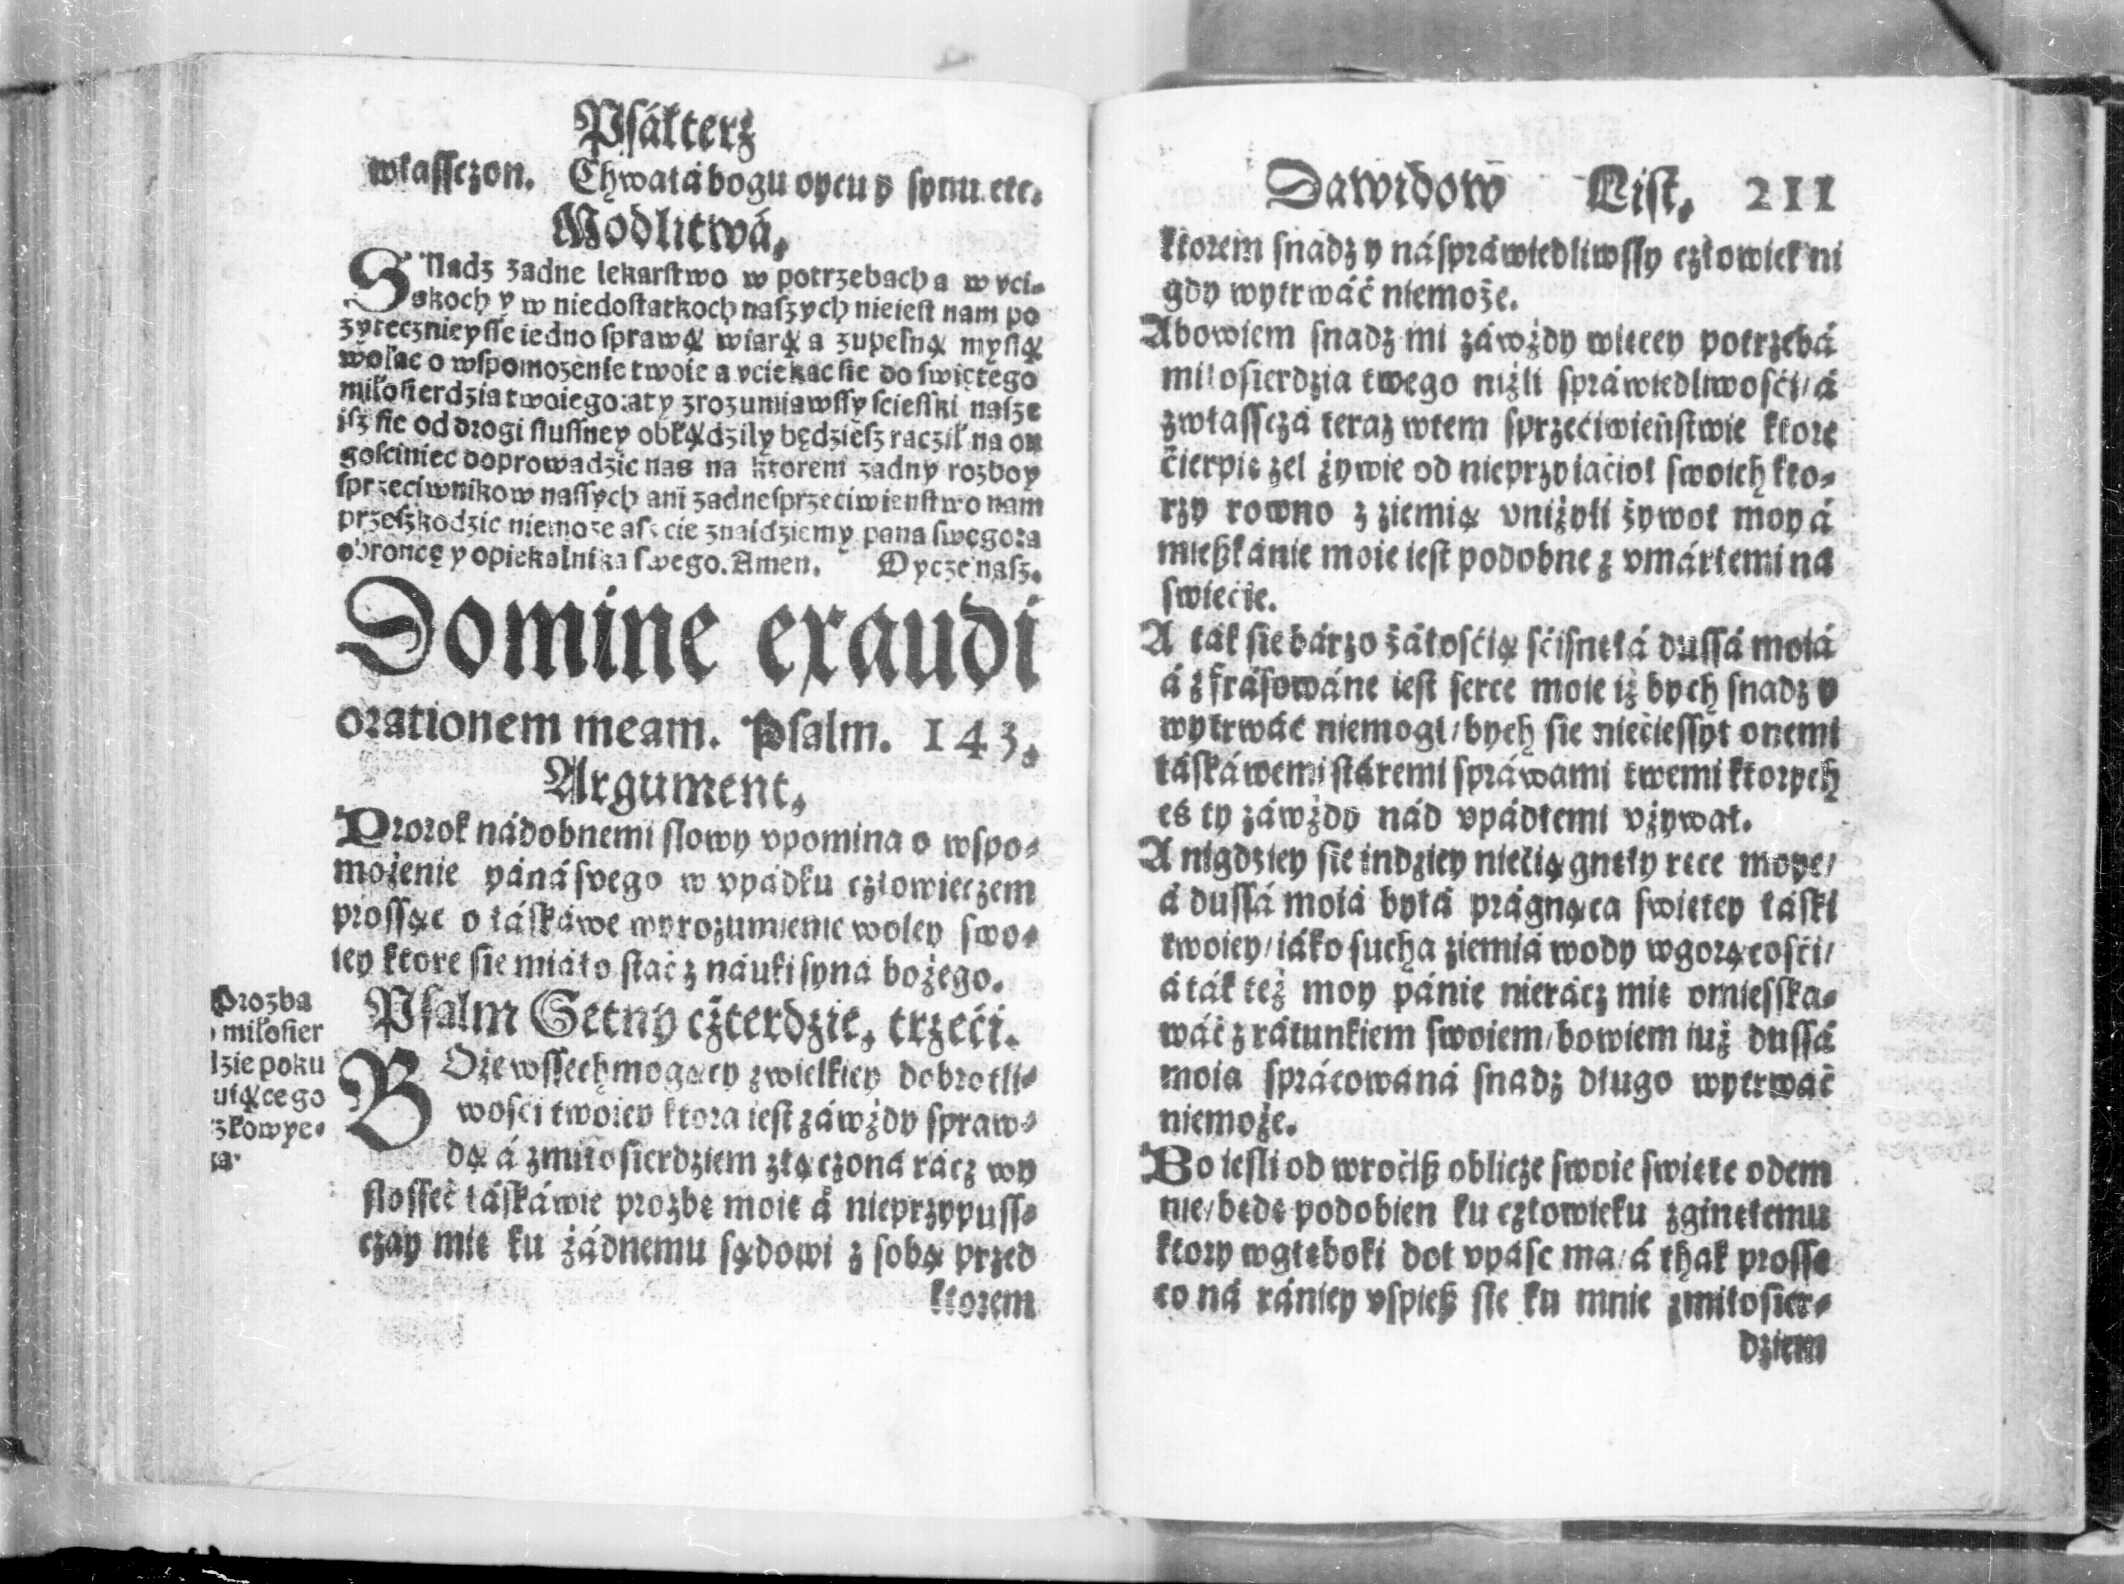 Psáłterz
własſczon. Chwałá bogu oycu y synu. etc.
Modlitwá.
SNadz zadne lekarſtwo w potrzebach a w vci-
skoch y w niedoſtatkoch naſzych nieieſt nam po
zytecznieyſſe iedno sprawą wiarą a zupełną myſlą
wołac o wspomozenie twoie a vciekac sie do swiętego
miłosierdzia twoiego: aty zrozumiawſſy sciefſki naſze
iſz sie od drogi sluſſney obłądzily będzieſz raczil na on
gosciniec doprowadzic nas na ktorem zadny rozboy
sprzeciwnikow naſſych ani zadne sprzeciwienſtwo nam
przeſzkodzic niemoze aſz cie znaidziemy pana swego za
obroncę y opiekalnika swego. Amen. Oycze naſz.
Domine exaudi
orationem meam. Psalm. 143.
Argument.
Prorok nádobnemi slowy vpomina o wspo-
możenie páná svego w vpádku człowieczem
proſſąc o łáſkáwe wyrozumienie woley swo-
iey ktore sie miáło stać z náuki syná bożego.
Psalm Setny czterdzie. trzeći.
Prozba
o miłosier
dzie poku
uiącego
BOże wſſechmogący zwielkiey dobrotli-
wośći twoiey ktora ieſt záwżdy spraw-
dą á zmiłosierdziem złączoná rácz wy
sloſſeć łáſkáwie prozbę moię á nieprzypuſſ-
czay mię ku żádnemu sądowi z sobą przed
ktorem
Dawidow̄ List. 211
ktorem snadz y násprawiedliwſſy człowiek ni
gdy wytrwáć niemoże.
Abowiem snadz mi záwżdy więcey potrzebá
miłosierdzia twego niżli spráwiedliwośći/ á
zwłaſſczá teraz wtem sprzećiwieńſtwie ktore
ćierpię zel żywie od nieprzyiaćioł swoich kto-
rzy rowno z ziemią vniżyli żywot moy á
mießkánie moie ieſt podobne z vmárłemi na
swiećie.
A ták sie bárzo żáłośćią śćiſnęłá duſſá moiá
á zfrásowáne ieſt serce moie iż bych snadz y
wytrwáć niemogł/ bych sie niećieſſył onemi
łáſkáwemi stáremi spráwami twemi ktorych
eś ty záwżdy nád vpádłemi vżywał.
A nigdziey sie indziey niećiągnęły ręce moye/
á duſſá moiá byłá prágnąca swiętey łáſki
twoiey/ iáko sucha ziemiá wody wgorącośći/
á ták też moy pánie nierácz mię omieſſka-
wáć z rátunkiem swoiem/ bowiem iuż duſſá
moia sprácowáná snadz długo wytrwáć
niemoże.
Bo ieſli od wroćiß oblicze swoie swięte odem
nie/ będę podobien ku człowieku zginęłemu
ktory wgłęboki doł vpásc ma/ á thak proſſę
co ná rániey vspieß sie ku mnie zmiłosier-
dziem